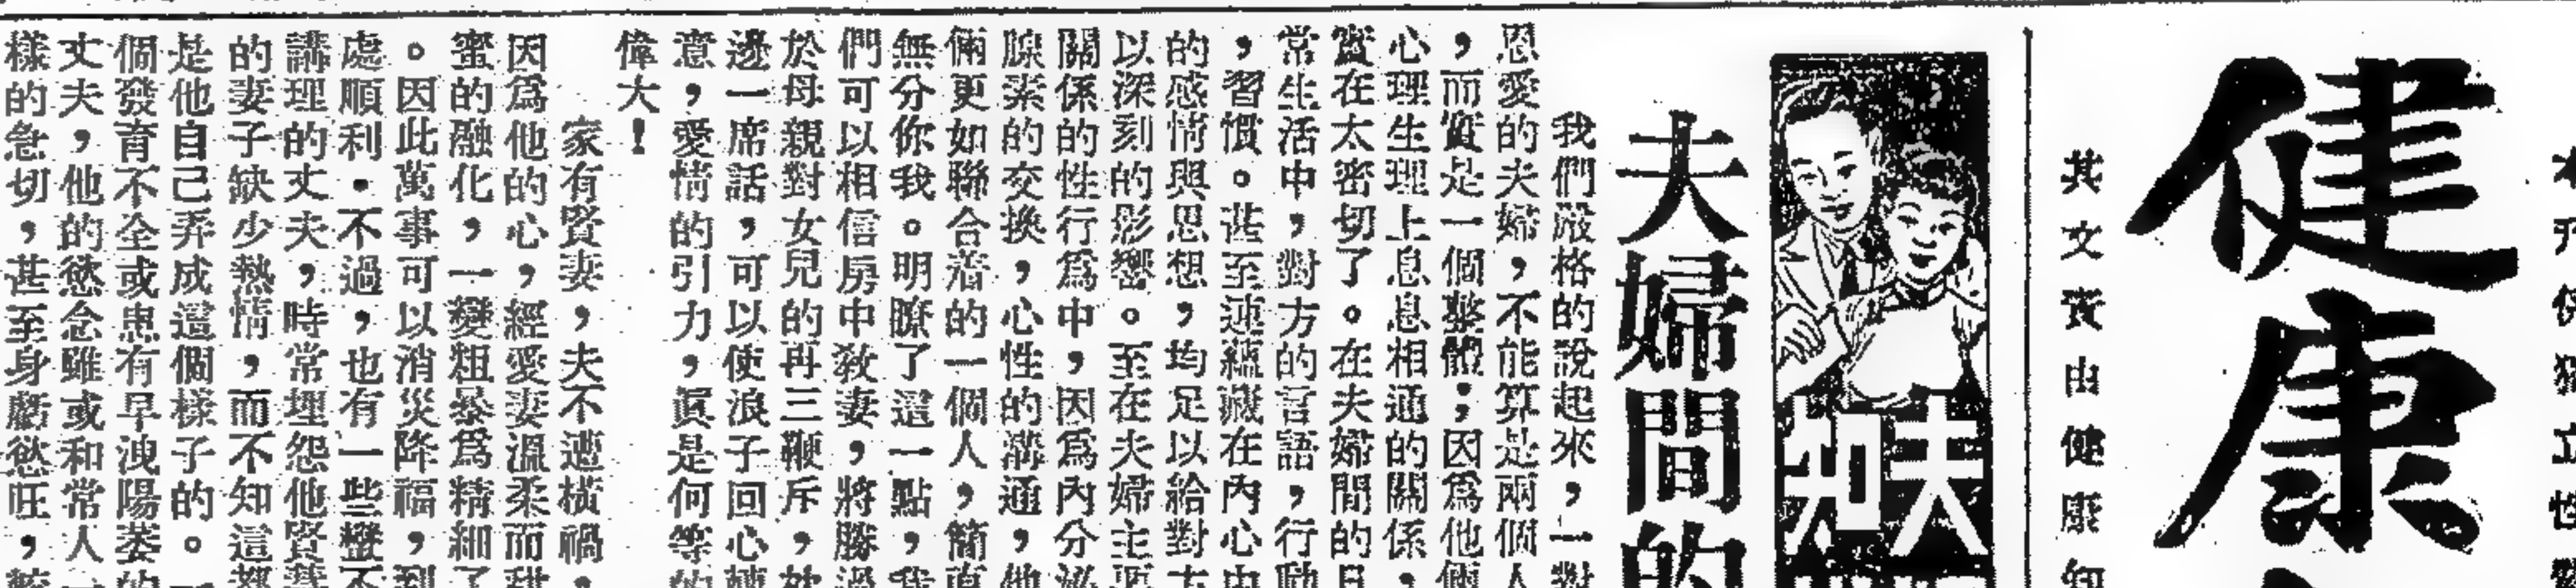 健康
其文責由健康知
夫
知
夫婦間的
我們嚴格的說起來，一對
恩愛的夫婦，不能算是兩個人
，而實是一個整體；因爲他倆
心理生理上息息相通的關係，
實在太密切了。在夫婦間的日
常生活中，對方的言語，行動
，習慣。甚至連蘊藏在內心中
的感情與思想，均足以給對方
以深刻的影響。至在夫婦主要
關係的性行爲中，因爲內分泌
腺素的交換，心性的溝通，他
倆更如聯合着的一個人，簡直
無分你我。明瞭了這一點，我
們可以相信房中敎妻，將勝過
於母親對女兒的再三鞭斥，枕
邊一席話，可以使浪子回心轉
意，愛情的引力，眞是何等的
偉大！
家有賢妻，夫不遭橫禍，
因爲他的心，經愛妻溫柔而甜
蜜的融化，一變粗暴爲精細了
。因此萬事可以消災降福，到
處順利．不過，也有一些蠻不
講理的丈夫，時常埋怨他賢慧
的妻子缺少熱情，而不知這都
是他自己弄成這個樣子的。一
個發育不全或患有早洩陽萎的
丈夫，他的慾念雖或和常人一
樣的急切，甚至身虧慾旺，較